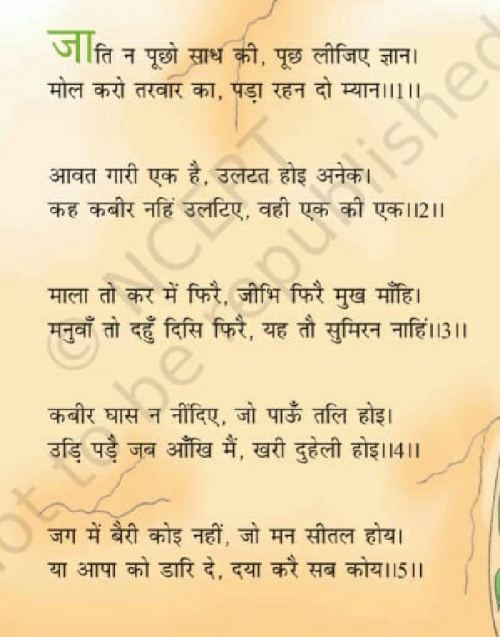 जाति न पूछो साध की, पूछ लीजिए ज्ञान।
मोल करो तरवार का, पड़ा रहन दो म्यान।।1।।
आवत गारी एक है, उलटत होइ अनेक।
कह कबीर नहिं उलटिए, वही एक की एक।।2।।
माला तो कर में फिरै, जीभि फिरै मुख माँहि।
मनुवाँ तो दहुँ दिसि फिरै, यह तौ सुमिरन नाहिं।।3।।
कबीर घास न नींदिए, जो पाऊँ तलि होइ।
उड़ि पड़ै जब आँखि मैं, खरी दुहेली होइ।।4।।
जग में बैरी कोइ नहीं, जो मन सीतल होय।
या आपा को डारि दे, दया करै सब कोय।।5।।
© NCERT
not to be republished